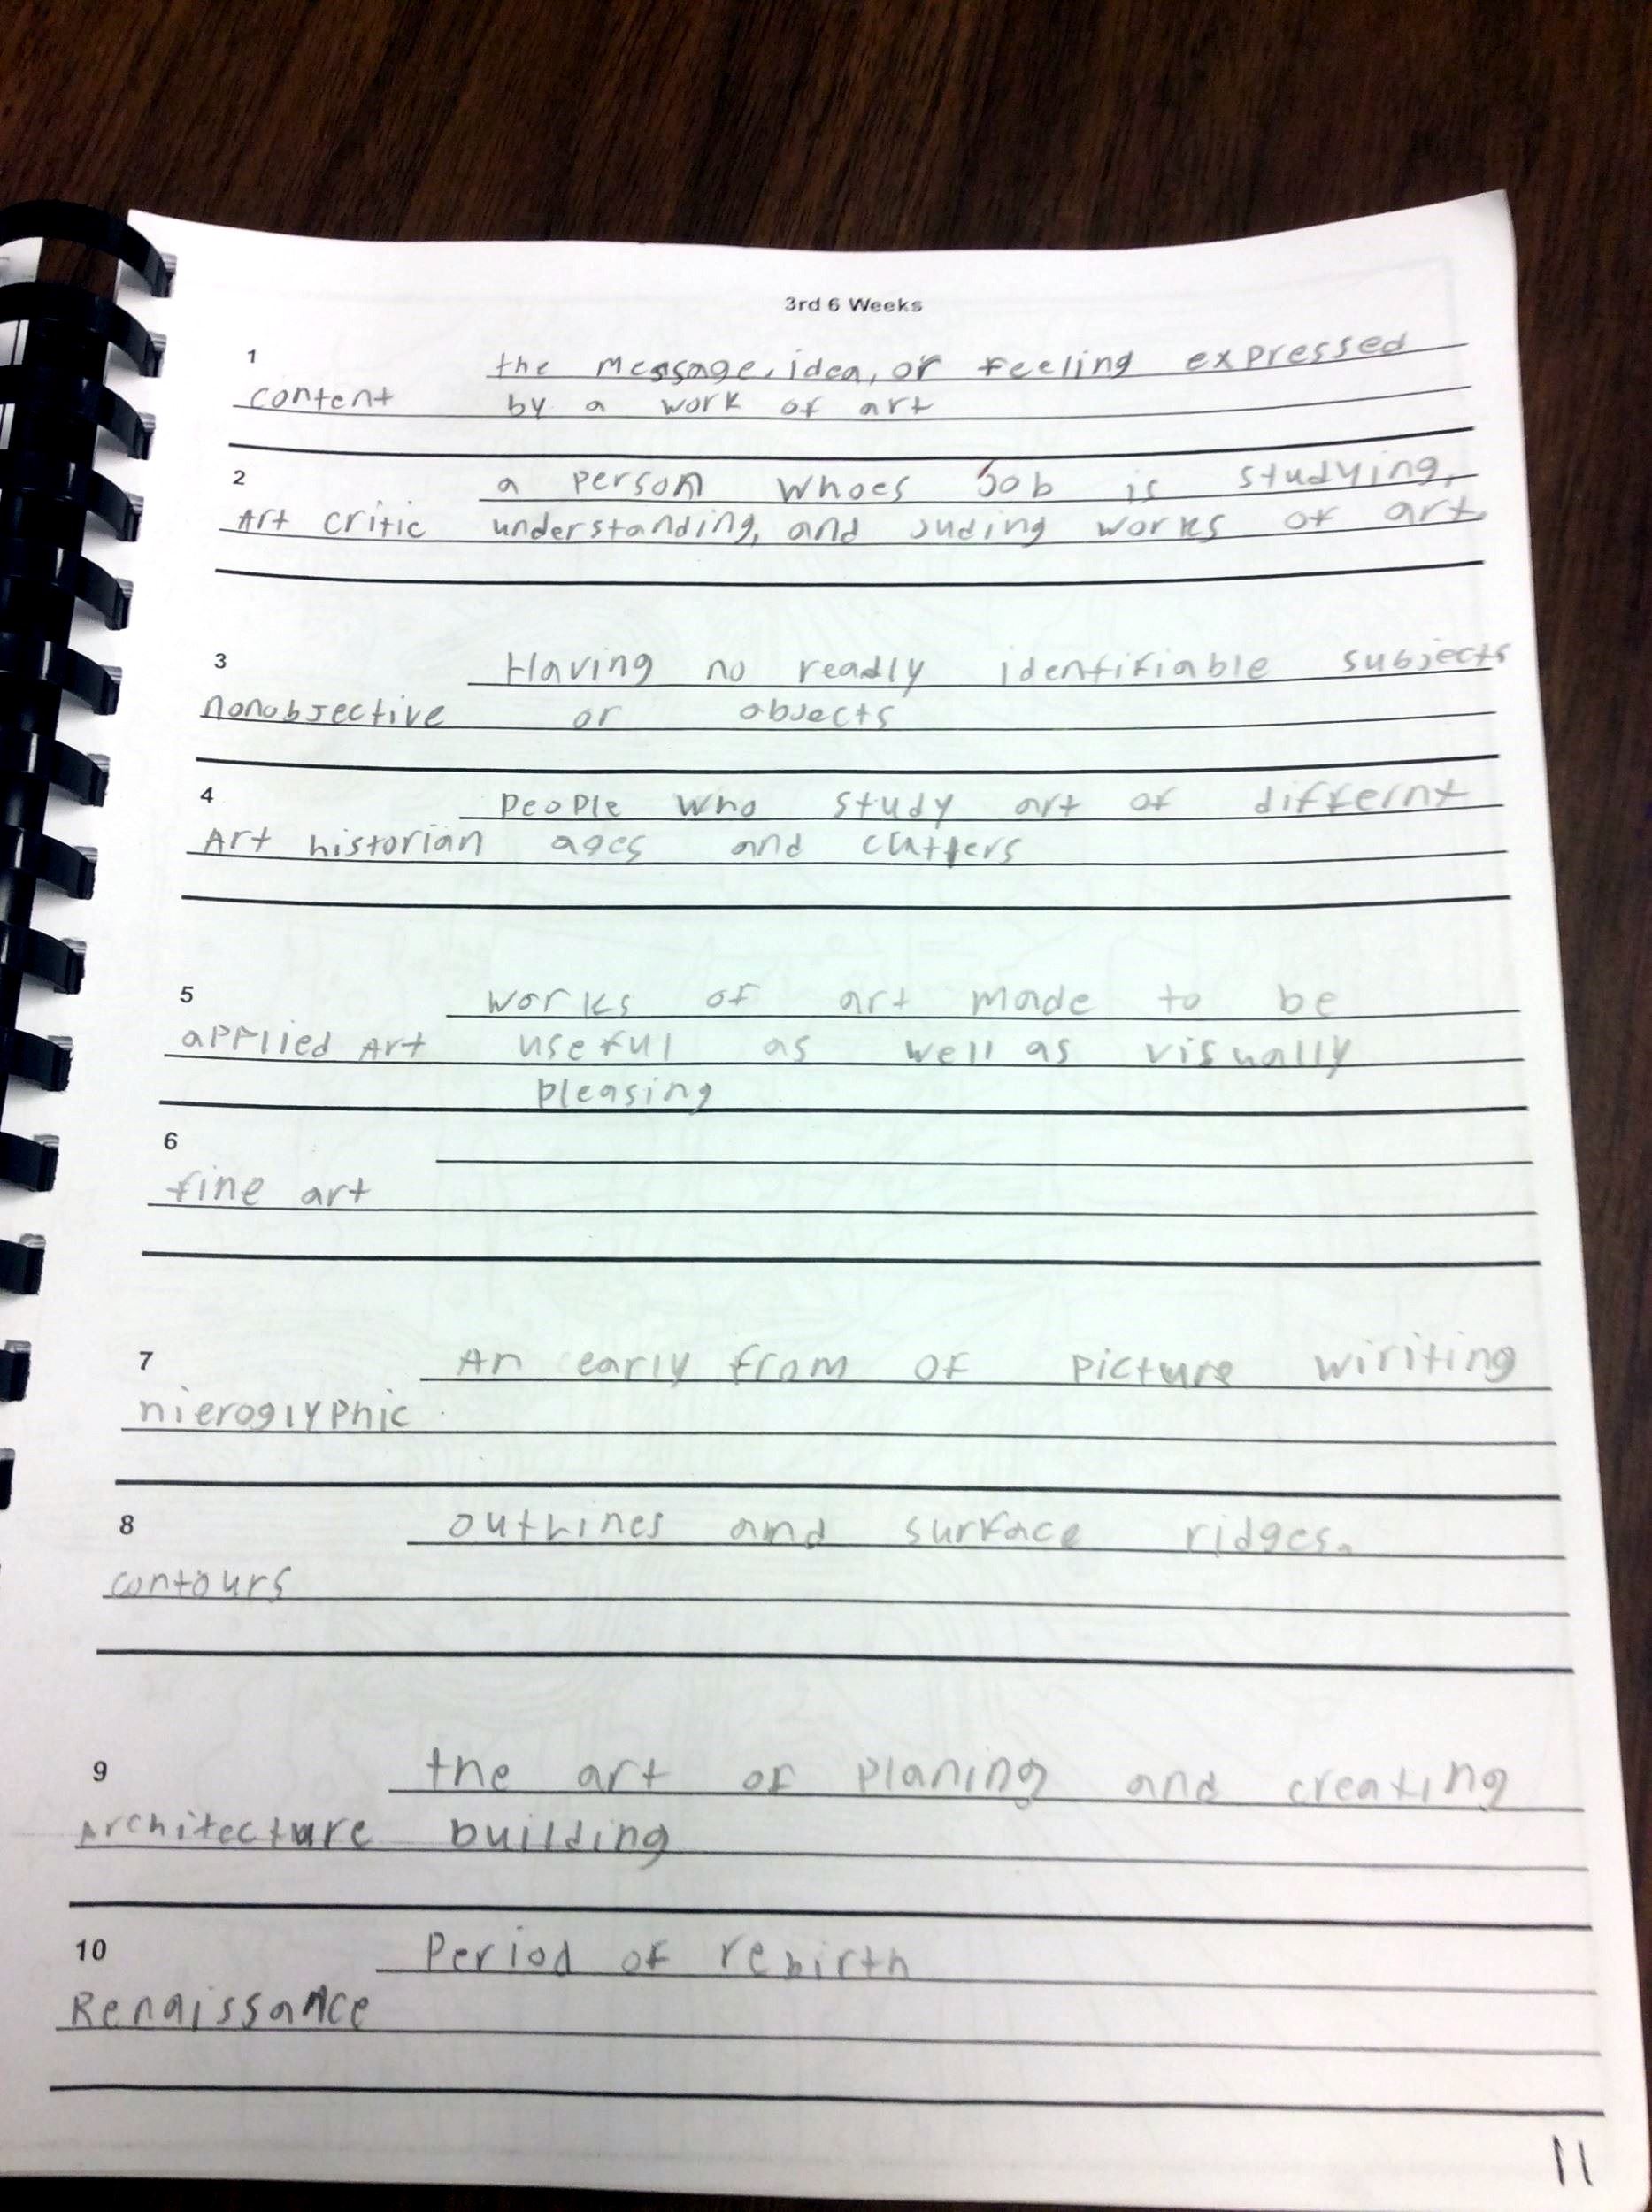 3rd 6 Weeks
1
the message, idea, or feeling expressed
content by a work of art
2
a person whoes job is studying,
Art critic understanding, and juding works of art.
3
Having no readly identifiable subjects
nonobjective or objects
4
people who study art of differnt
Art historian ages and
5
works of art made to be
applied Art useful as well as visually
pleasing
6
fine art
7
An early from of picture wiriting
hieroglyphic
8
outlines and surface ridges.
contours
9
the art of planing and creating
Architecture building
10
Period of rebirth
Renaissance
11